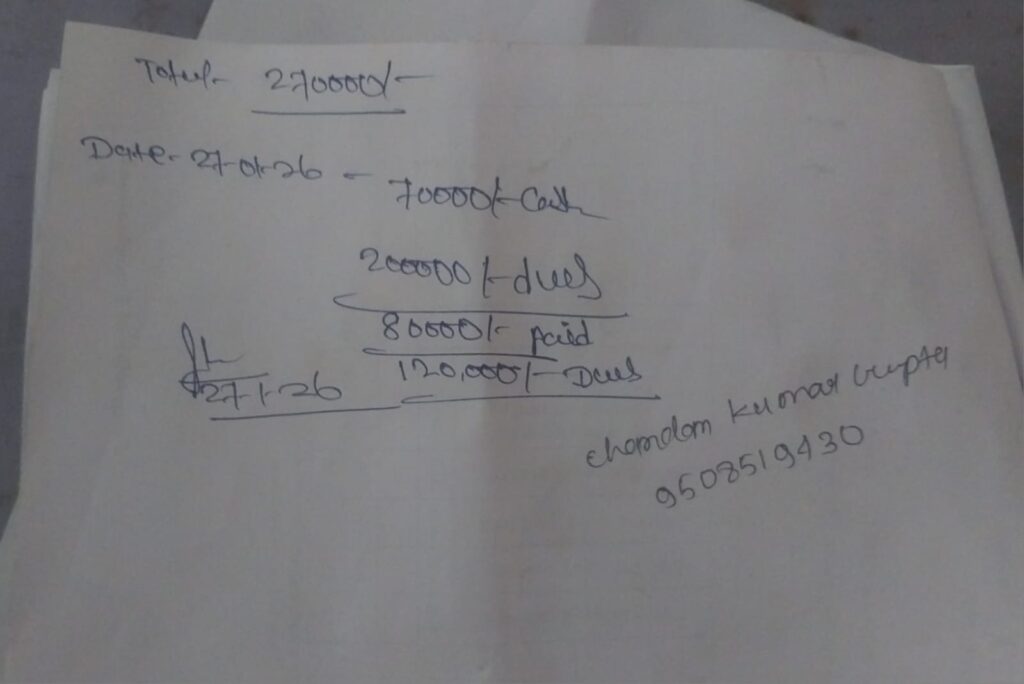 Total- 270000/-
Date- 27-01-26 - 70000/- Cash
200000/- dues
80000/- paid
120,000/- Dues
27-1-26
chandan Kumar Gupta
9508519430